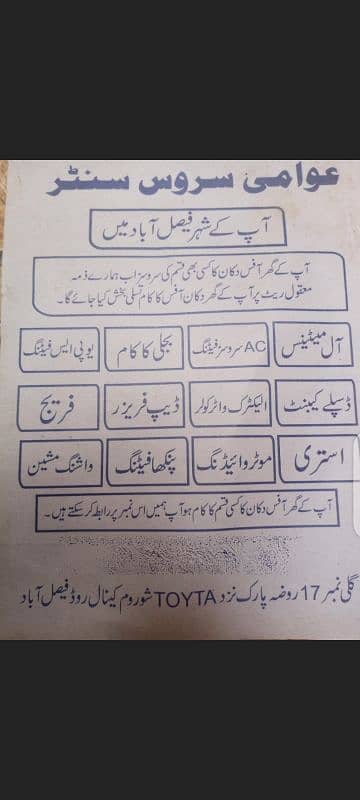 عوامی سروس سنٹر
آپ کے شہر فیصل آباد میں
آپ کے گھر آفس دکان کا کسی بھی قسم کی سروسز اب ہمارے ذمہ
معقول ریٹ پر آپ کے گھر دکان آفس کا کام تسلی بخش کیا جائے گا۔
آل میٹینس
AC سروسز فیٹنگ
بجلی کا کام
یو پی ایس فیٹنگ
ڈسپلے کیبنٹ
الیکٹرک واٹر کولر
ڈیپ فریزر
فریج
استری
موٹر وائیڈنگ
پنکھا فیٹنگ
واشنگ مشین
آپ کے گھر آفس دکان کا کسی قسم کا کام ہو آپ ہمیں اس نمبر پر رابطہ کر سکتے ہیں۔
گلی نمبر 17 روضہ پارک نزد TOYTA شوروم کینال روڈ فیصل آباد